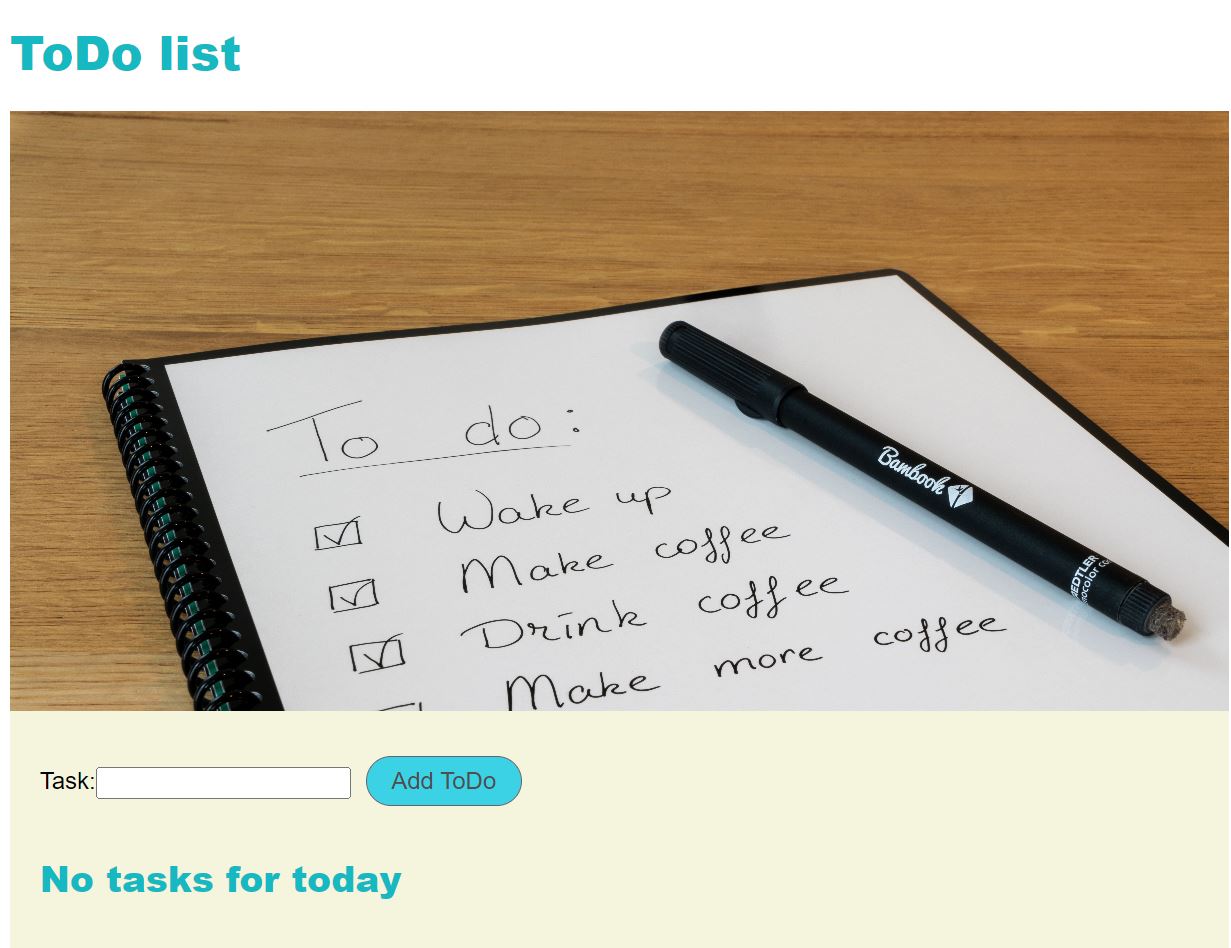 ToDo list
To do:
Wake up
Make coffee
Drink coffee
Make more coffee
Bambook
Task:
Add ToDo
No tasks for today